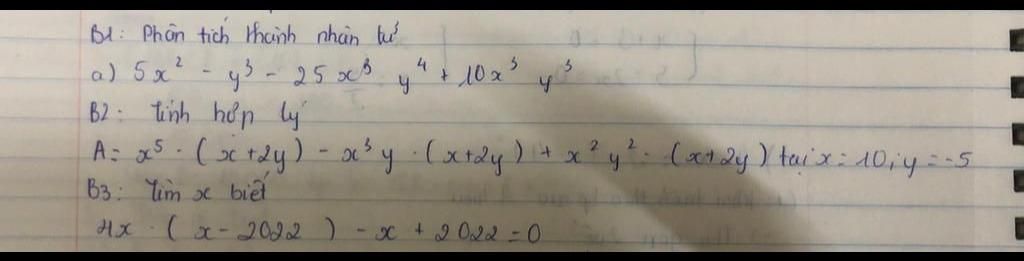 B1: Phân tích thành nhân tử
a) 5x² - y³ - 25x³ y⁴ + 10x³ y³
B2: Tính hợp lý
A = x⁵ · (x + 2y) - x³y · (x+2y) + x²y² · (x+2y) tại x = 10; y = -5
B3: Tìm x biết
4x · (x - 2022) - x + 2022 = 0